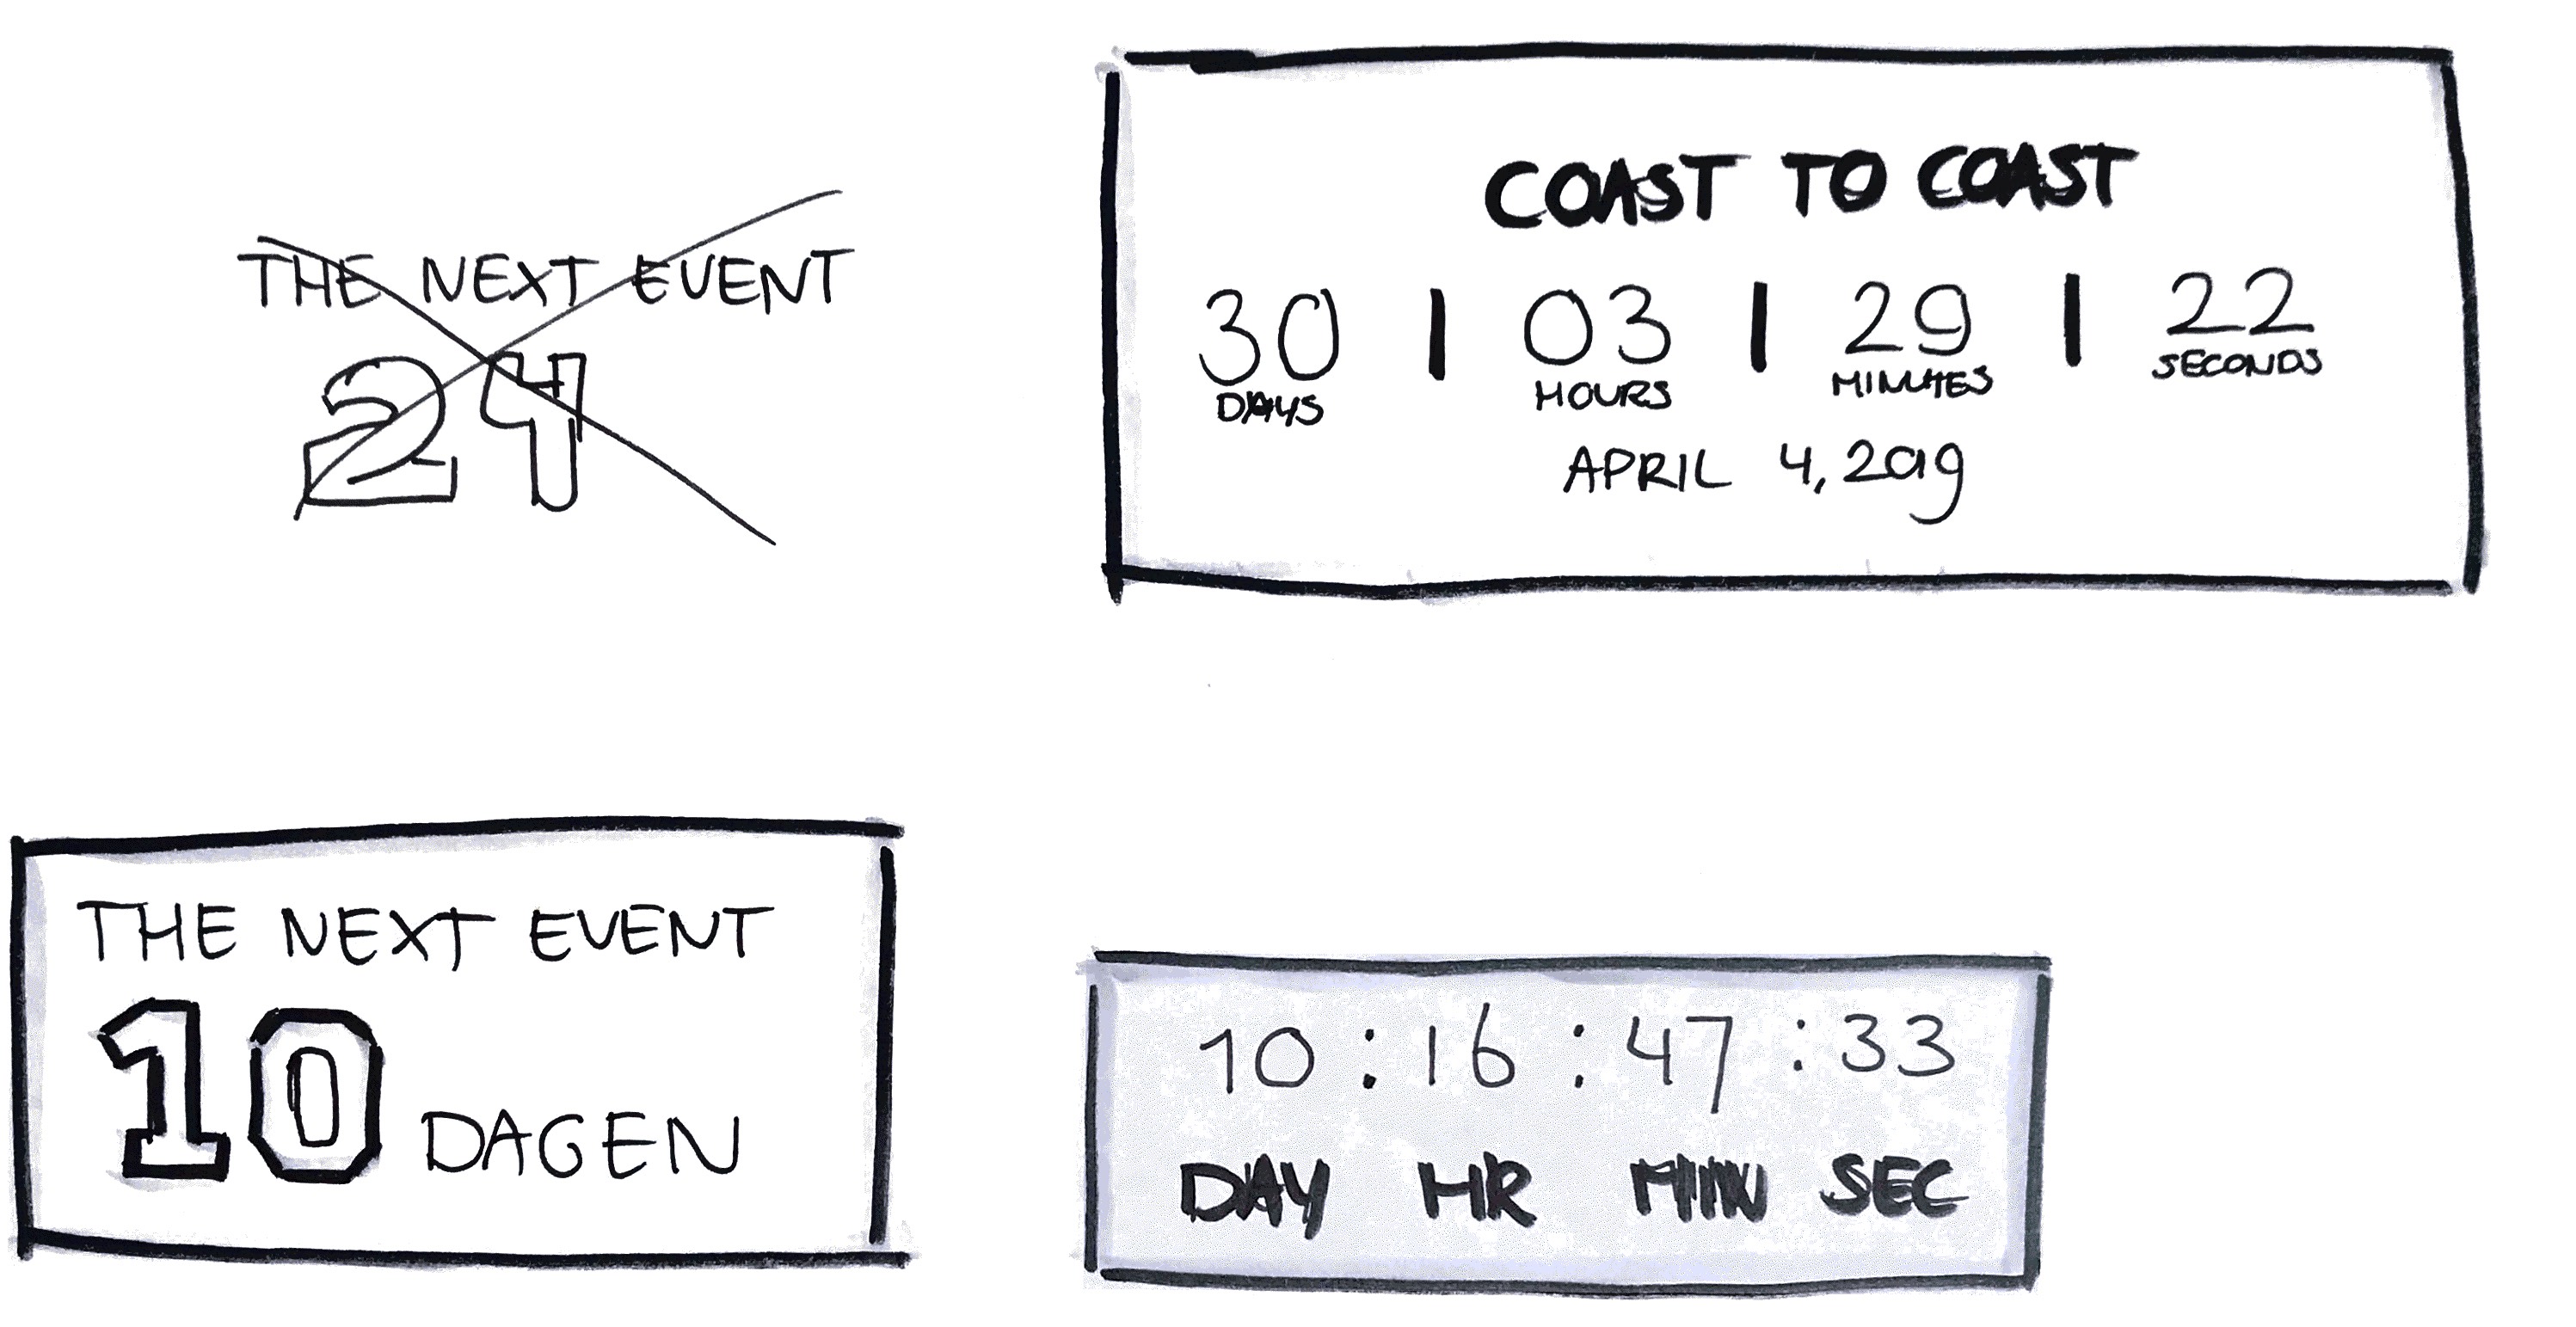 THE NEXT EVENT
24
COAST TO COAST
30 | 03 | 29 | 22
DAYS HOURS MINUTES SECONDS
APRIL 4, 2019
THE NEXT EVENT
10 DAGEN
10 : 16 : 47 : 33
DAY HR MIN SEC